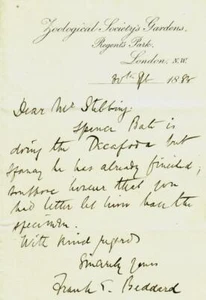 Zoological Society's Gardens,
Regent's Park,
London, N.W.
Sept 188
Dear Mr Stebbing
Spence Bate is
doing the Decapoda but
he has already finished;
suppose however that you
had better let him have the
specimen.
With kind regards
Sincerely yours
Frank E. Beddard